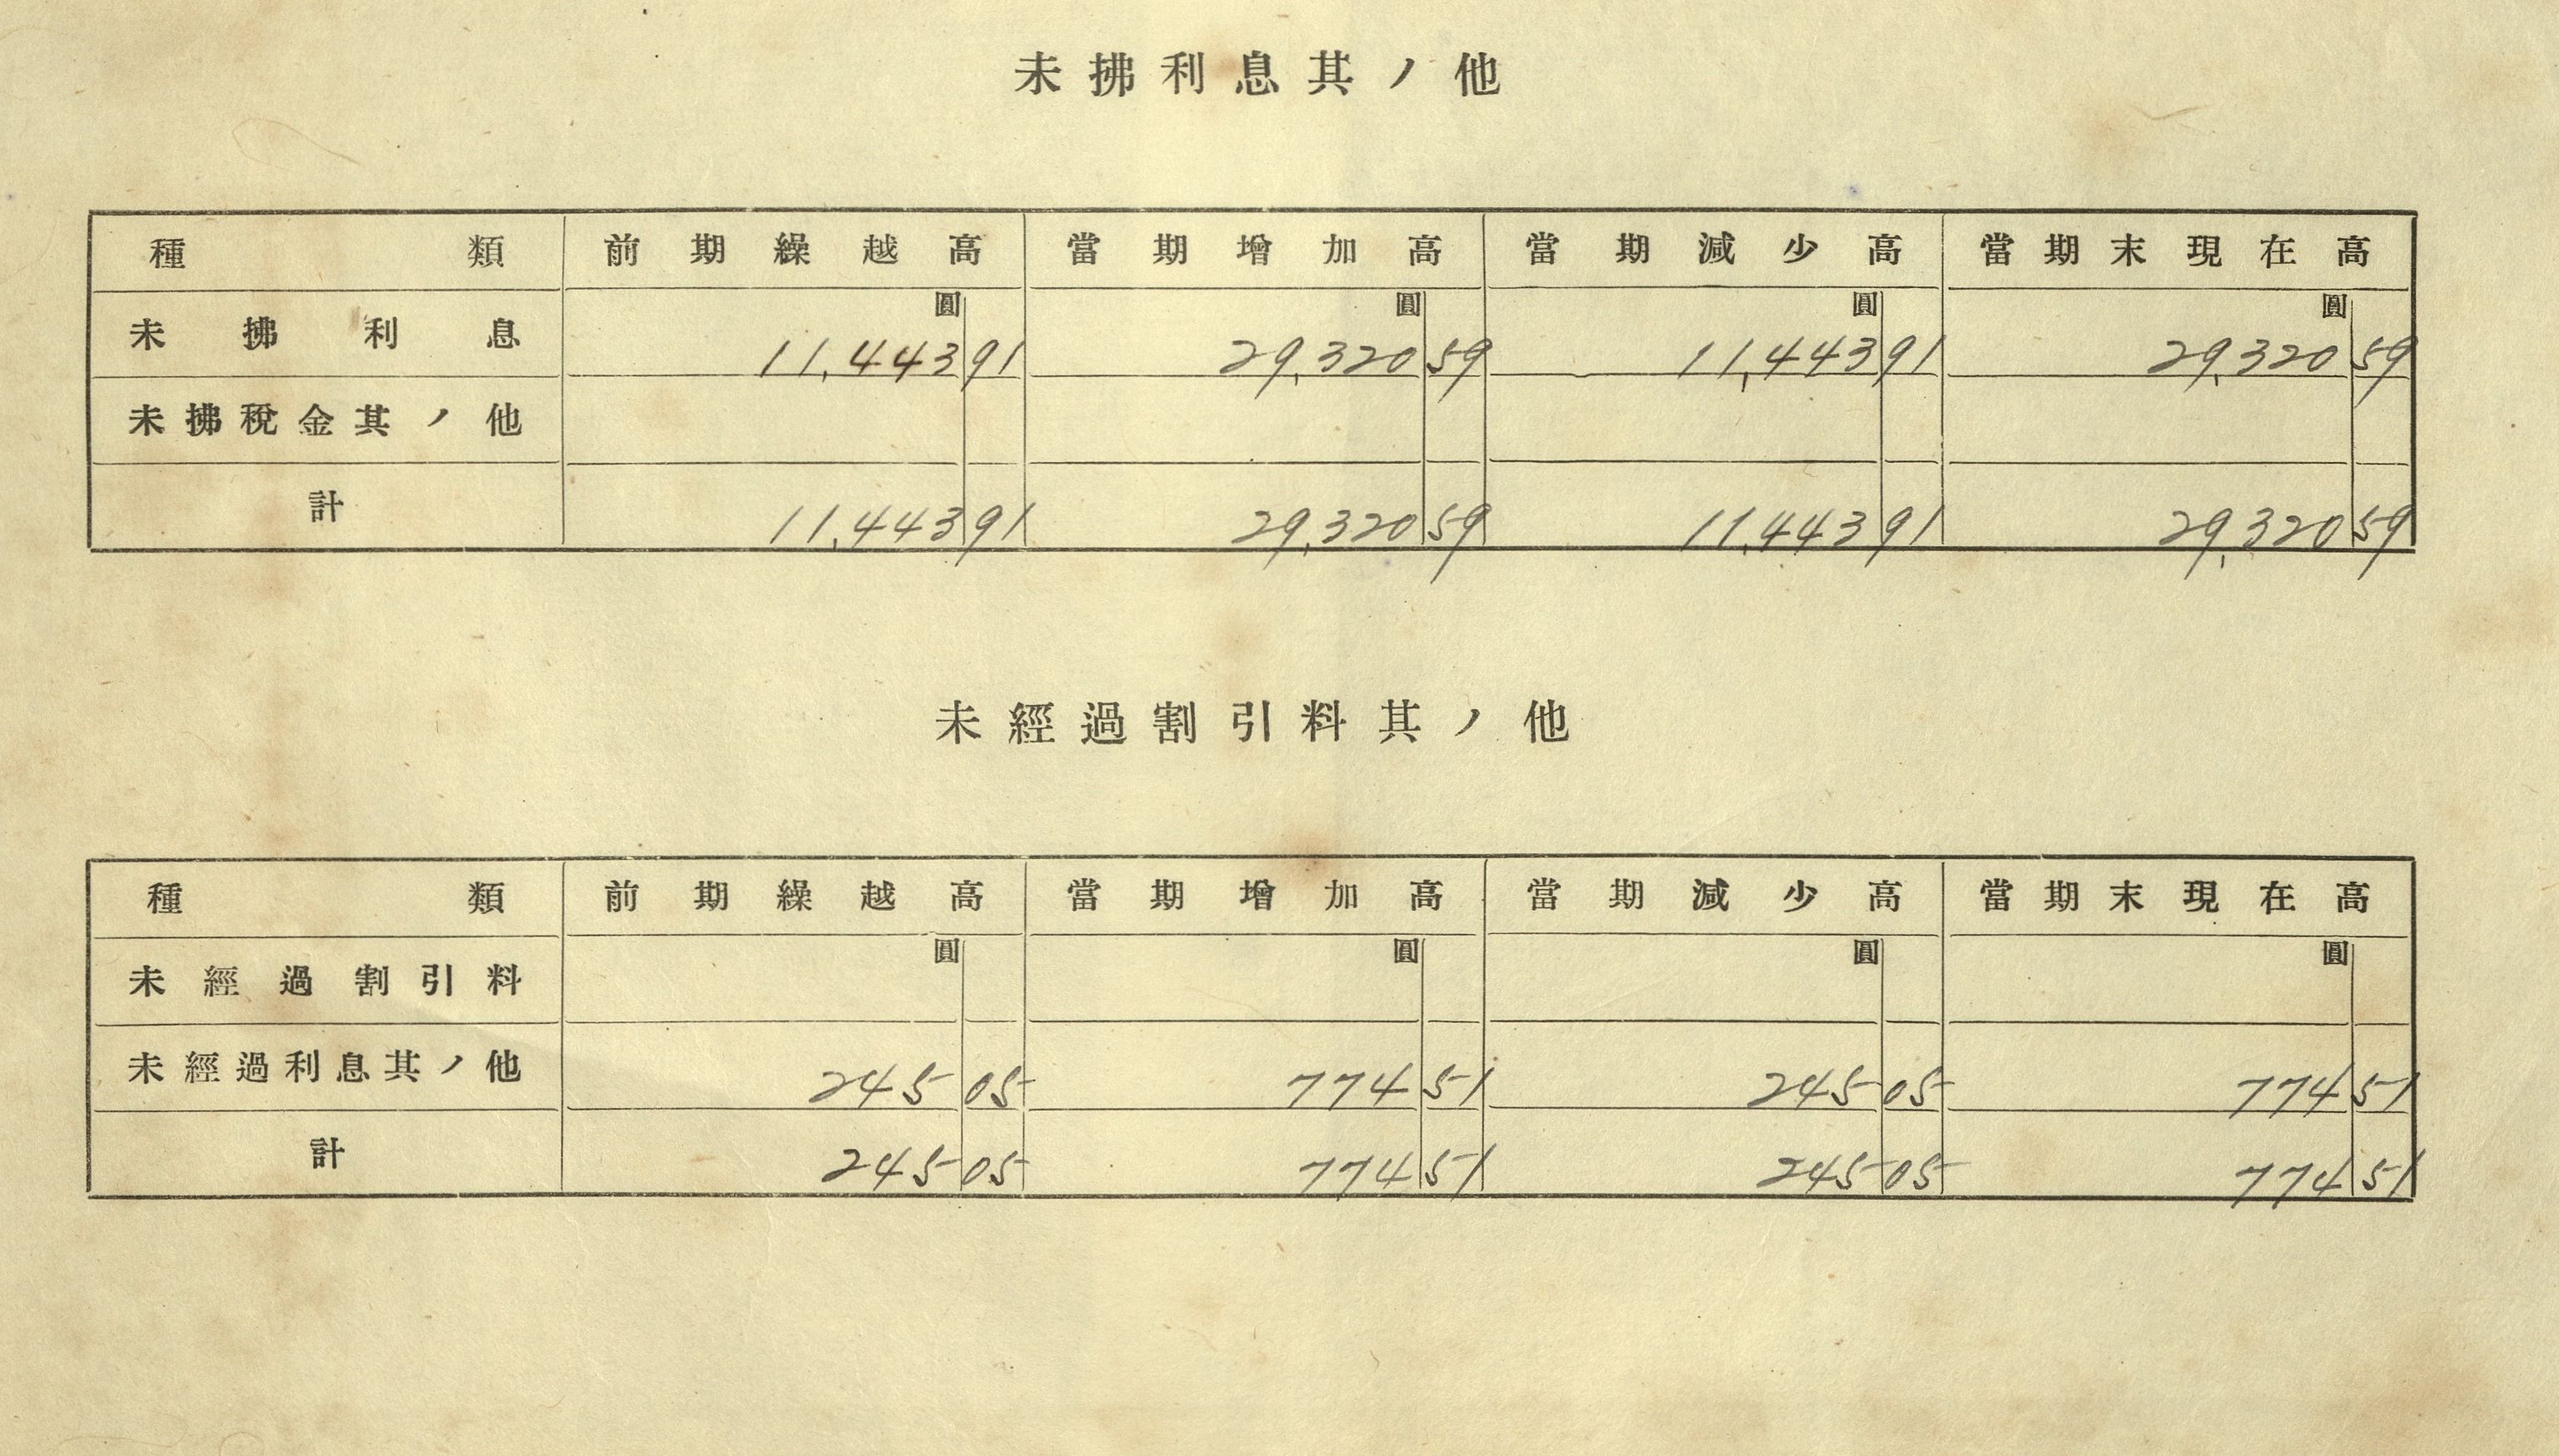 未拂利息其ノ他
種類 前期繰越高 當期增加高 當期減少高 當期末現在高
圓 圓 圓 圓
未拂利息 11,443 91 29,320 59 11,443 91 29,320 59
未拂稅金其ノ他
計 11,443 91 29,320 59 11,443 91 29,320 59
未經過割引料其ノ他
種類 前期繰越高 當期增加高 當期減少高 當期末現在高
圓 圓 圓 圓
未經過割引料
未經過利息其ノ他 245 05 774 51 245 05 774 51
計 245 05 774 51 245 05 774 51